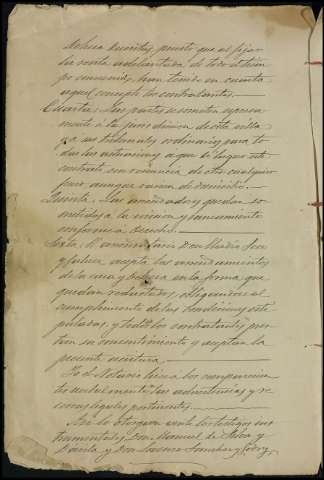 de dicha cuenta, puesto que al fijar
la renta adelantada de todo el tiem
po convenido, han tenido en cuenta
aquel concepto los contratantes.
Cuarta. Las partes se someten expresa
mente a la jurisdiccion de esta villa
y a sus tribunales ordinarios para to
das las actuaciones a que dé lugar este
contrato con renuncia de otro cualquier
fuero aunque varien de domicilio.
Quinta. Los arrendadores quedan so
metidos a la eviccion y saneamiento
conforme a Derecho.
Sexta. El arrendatario Don
acepta los arrendamientos
de la casa y bodega en la forma que
quedan redactados, obligandose al
cumplimiento de las condiciones esti
puladas, y todos los contratantes pres
tan su consentimiento y aceptan la
presente escritura.
Yo el Notario hice a los comparecien
tes verbalmente las advertencias y re
servas legales pertinentes.
Así lo otorgan ante los testigos ins
trumentales, Don Manuel de y
y Don Lorenzo Sanchez y